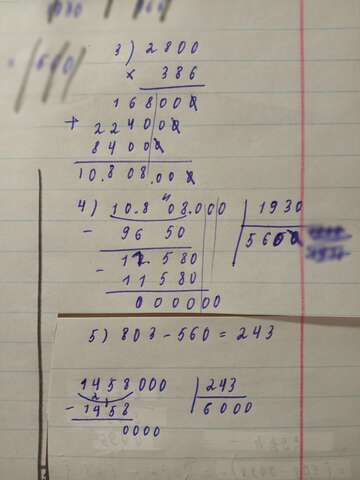 3) 2800
× 386
168000
+ 224000
84000
10.808.000
4) 10.808.000 | 1930
- 9650 5600
11580
- 11580
000000
5) 803 - 560 = 243
1458000 | 243
- 1458 6000
0000